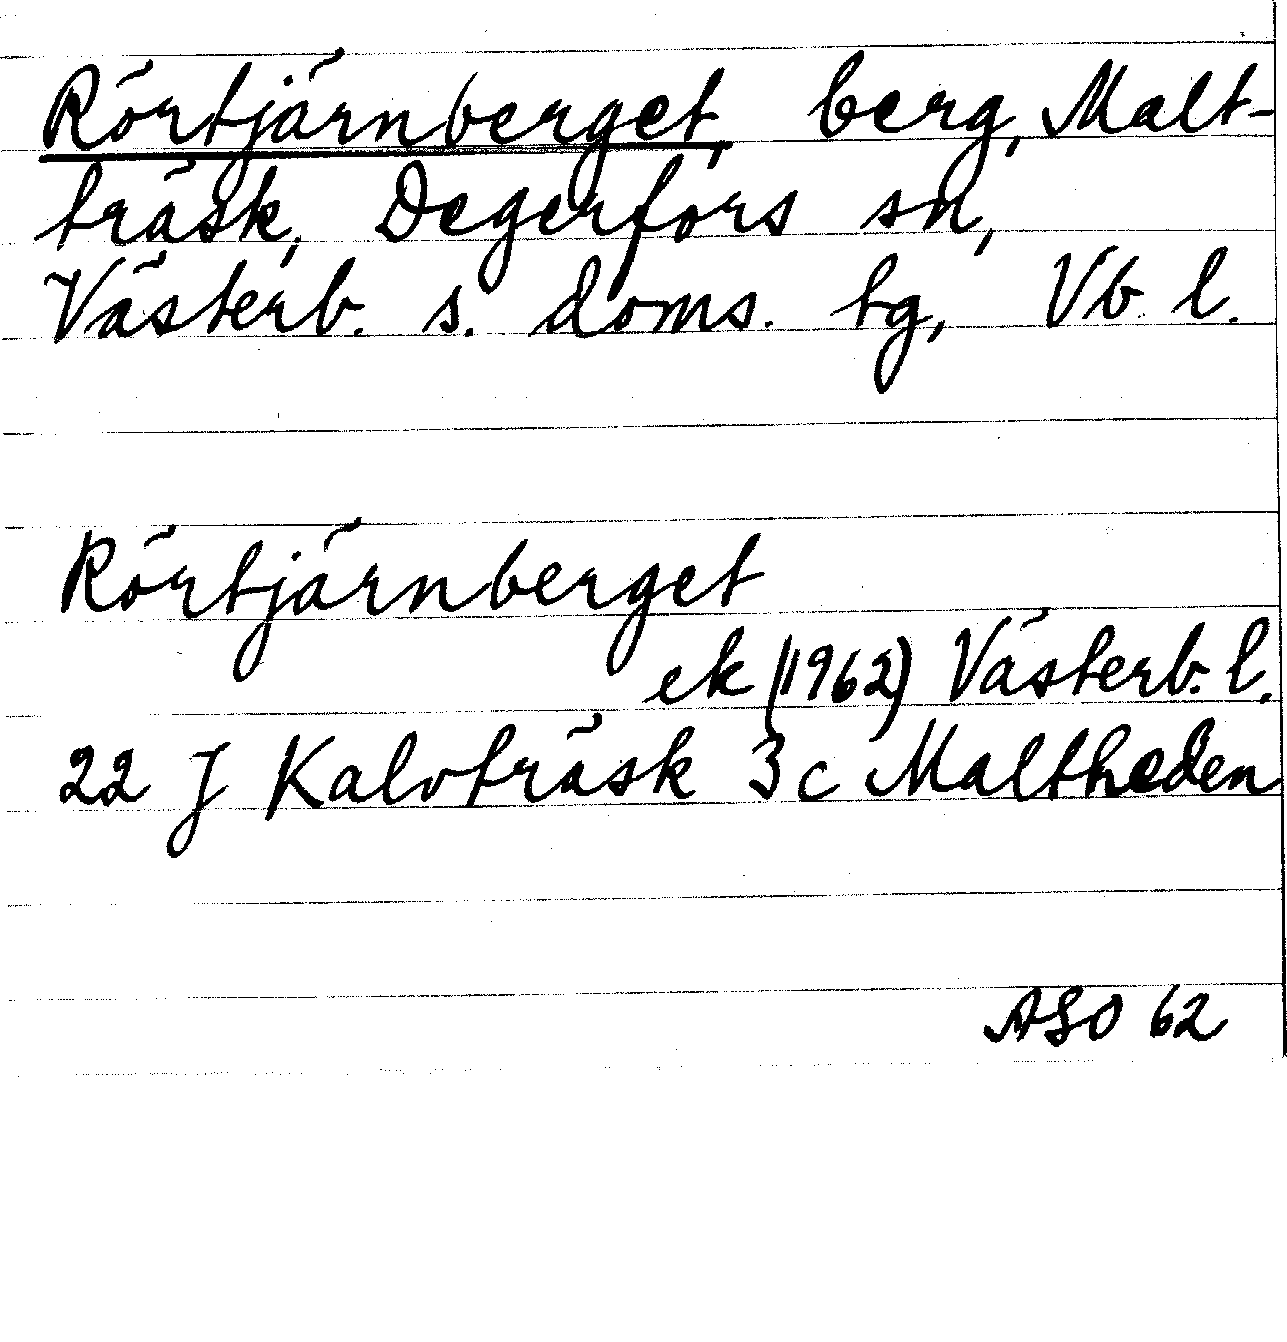 Rörtjärnberget, berg, Malt-
träsk, Degerfors sn,
Västerb. s. doms. tg, Vb l.
Rörtjärnberget
ek (1962) Västerb. l.
22 J Kalvträsk 3 c Maltheden
ASO 62